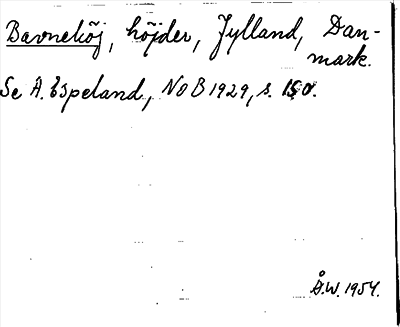 Bavnehöj, höjder, Jylland, Dan-
mark.
Se A. Espeland, NoB 1929, s. 150.
Å.W. 1954.